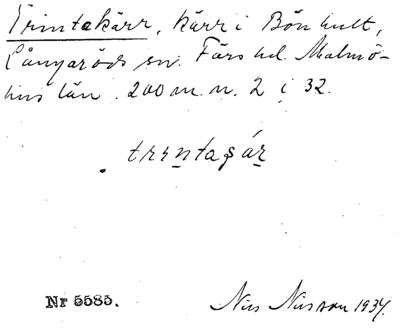 Trintekärr, kärr i Bönhult,
Långaröds sn. Färs hd. Malmö-
hus län. 200 m. n. 2 i 32.
trıntaʂár
Nr 5585.
Nils Nilsson 1934.